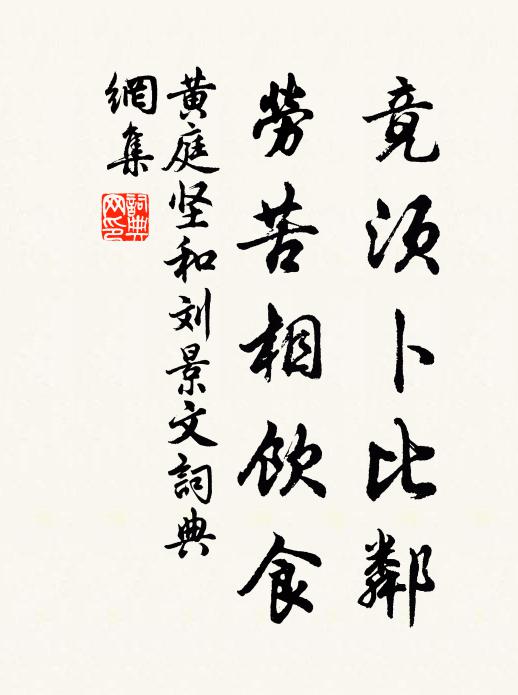 竟須卜比鄰
勞苦相飲食
黄庭坚和刘景文詞典
網集
詞典
网印